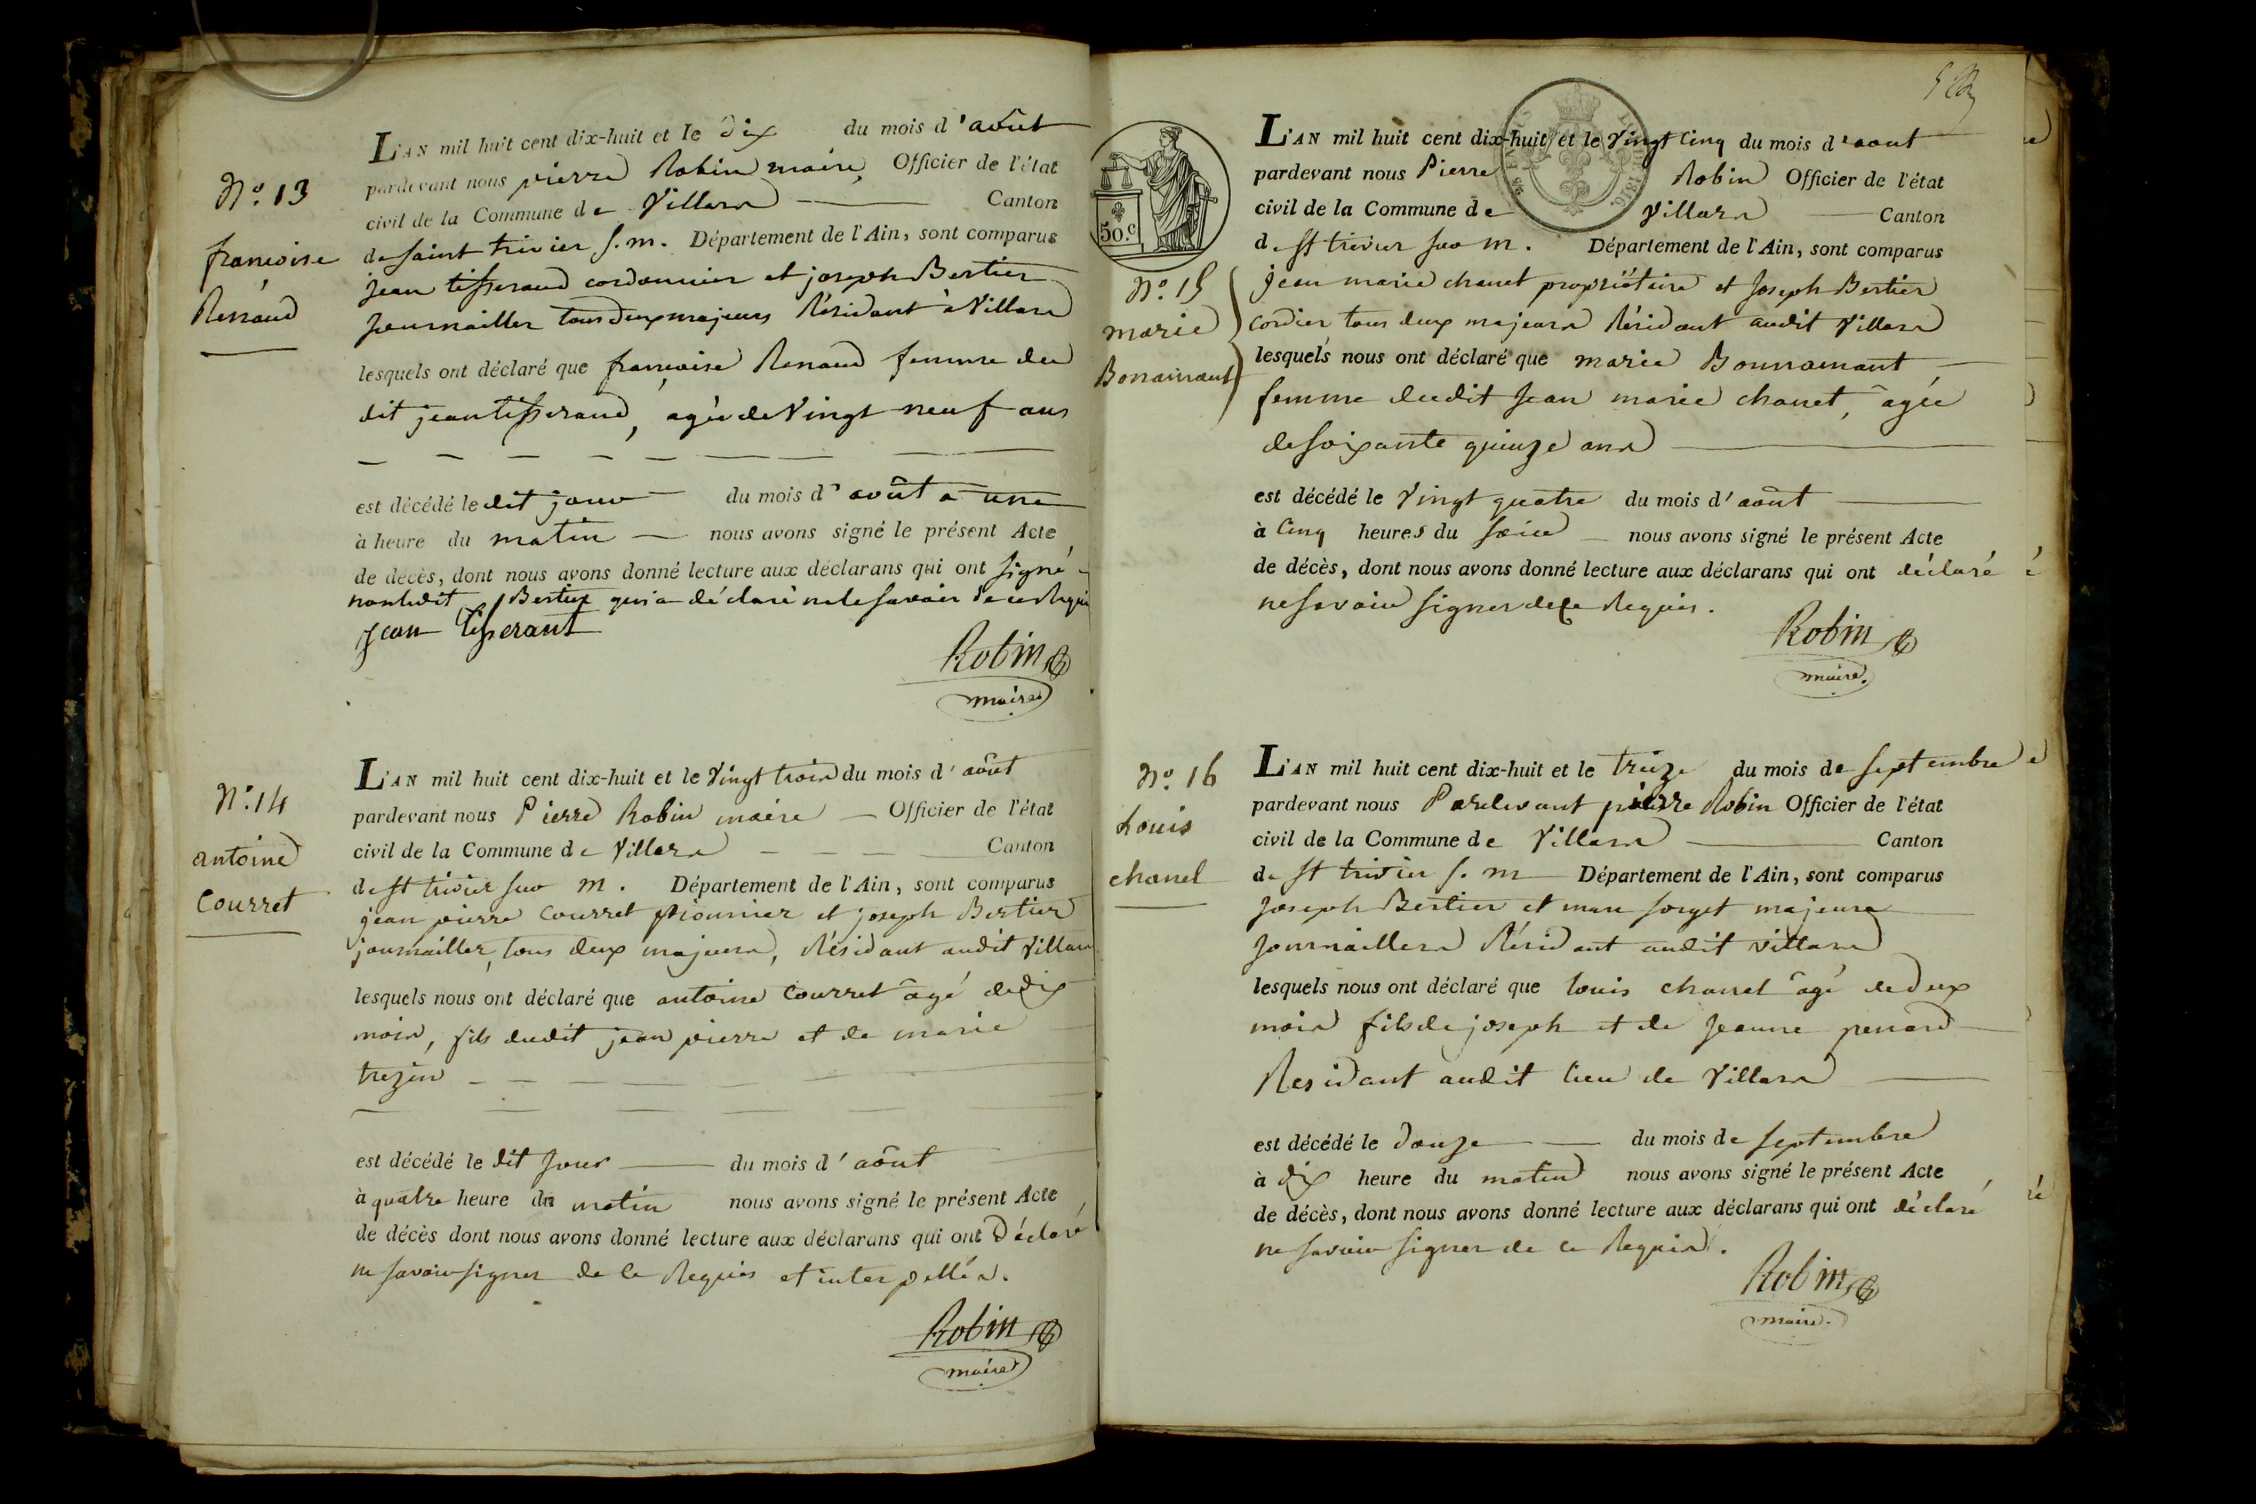 N.º 13
françoise
Renaud
L'AN mil huit cent dix-huit et le dix du mois d'août
pardevant nous pierre Robin maire, Officier de l'état
civil de la Commune de Villars Canton
de saint trivier s. m. Département de l'Ain, sont comparus
jean tisserand cordonnier et joseph Bertier
journailler tous deux majeurs Résidant à Villars
lesquels ont déclaré que françoise Renaud femme du
dit jean tisserand, agée de Vingt neuf ans
est décédé le dit jour du mois d'août à une
à heure du matin nous avons signé le présent Acte
de décès, dont nous avons donné lecture aux déclarans qui ont signé
non ledit Bertier qui a déclaré ne le savoir de ce Requis
jean tisserant
Robin
maire
N.º 14
antoine
Courret
L'AN mil huit cent dix-huit et le Vingt trois du mois d'août
pardevant nous Pierre Robin maire Officier de l'état
civil de la Commune de Villars Canton
de st trivier sur m. Département de l'Ain, sont comparus
jean pierre Courret pionnier et joseph Bertier
journailler, tous deux majeurs, Résidant audit Villars
lesquels nous ont déclaré que antoine Courret âgé de dix
mois, fils dudit jean pierre et de marie
trezin
est décédé le dit jour du mois d'août
à quatre heure du matin nous avons signé le présent Acte
de décès dont nous avons donné lecture aux déclarans qui ont Déclaré
ne savoir signer de ce Requis et interpellés.
Robin
maire
50.c
N.º 15
marie
Bonnamant
L'AN mil huit cent dix-huit et le Vingt Cinq du mois d'aout
pardevant nous Pierre Robin Officier de l'état
civil de la Commune de Villars Canton
de st trivier sur m. Département de l'Ain, sont comparus
jean marie chanet propriétaire et joseph Bertier
Cordier tous deux majeurs Résidant audit Villars
lesquels nous ont déclaré que marie Bonnamant
femme dudit jean marie chanet, âgée
de soixante quinze ans
est décédé le Vingt quatre du mois d'août
à Cinq heures du soir nous avons signé le présent Acte
de décès, dont nous avons donné lecture aux déclarans qui ont déclaré
ne savoir signer de ce Requis.
Robin
maire.
N.º 16
Louis
chanel
L'AN mil huit cent dix-huit et le treize du mois de septembre
pardevant nous Pardevant pierre Robin Officier de l'état
civil de la Commune de Villars Canton
de st trivier s. m Département de l'Ain, sont comparus
joseph Bertier et marc forget majeurs
journaillers Résidant audit villars
lesquels nous ont déclaré que louis chanel âgé de deux
mois fils de joseph et de jeanne penard
Residant audit lieu de Villars
est décédé le douze du mois de septembre
à dix heure du matin nous avons signé le présent Acte
de décès, dont nous avons donné lecture aux déclarans qui ont déclaré
ne savoir signer de ce Requis.
Robin
maire.